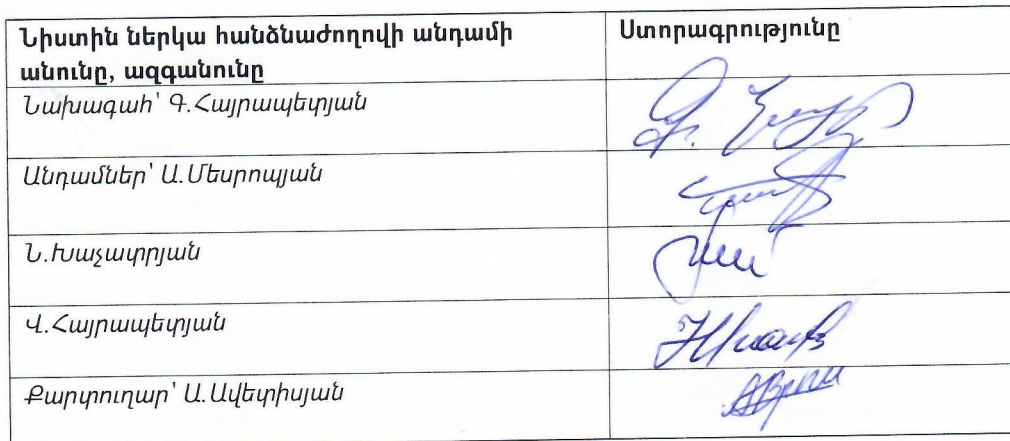 Նիստին ներկա հանձնաժողովի անդամի
անունը, ազգանունը
Ստորագրությունը
Նախագահ՝ Գ.Հայրապետյան
Անդամներ՝ Ա.Մեսրոպյան
Ն.Խաչատրյան
Վ.Հայրապետյան
Քարտուղար՝ Ա.Ավետիսյան